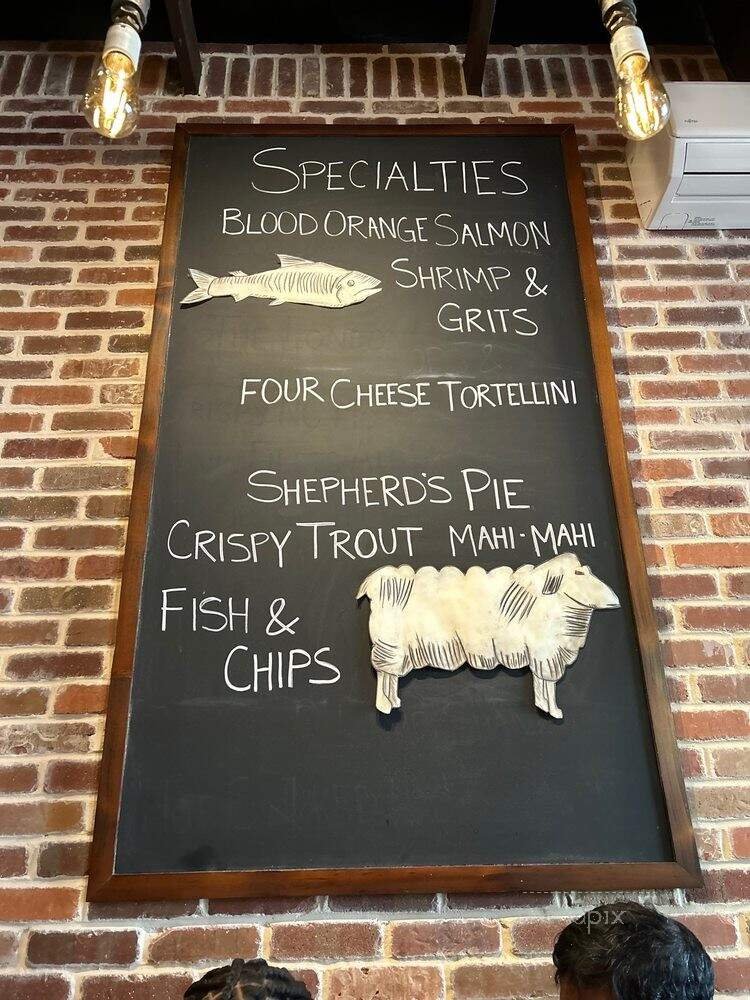 SPECIALTIES
BLOOD ORANGE SALMON
SHRIMP &
GRITS
FOUR CHEESE TORTELLINI
SHEPHERD'S PIE
CRISPY TROUT MAHI-MAHI
FISH &
CHIPS
FUJITSU